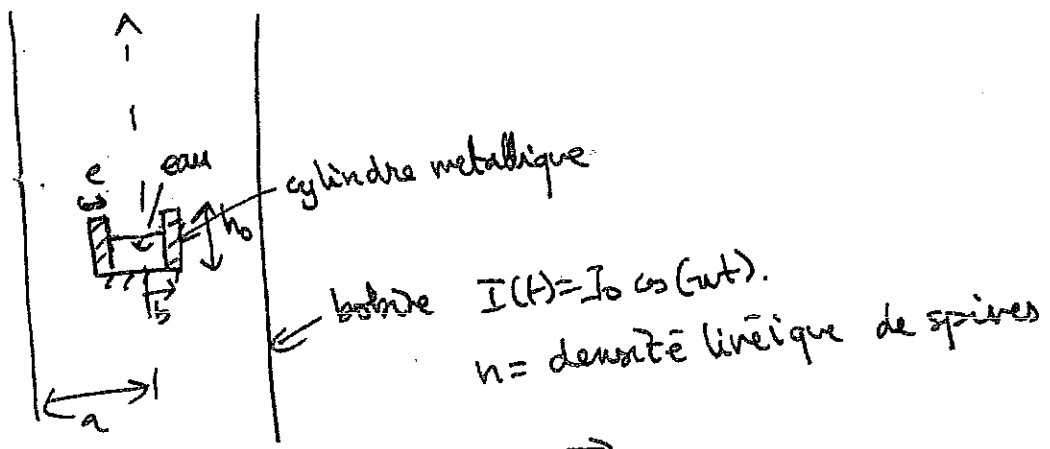 e
eau
cylindre métallique
h₀
b
bobine I(t)=I₀ cos(ωt).
n= densité linéique de spires
a